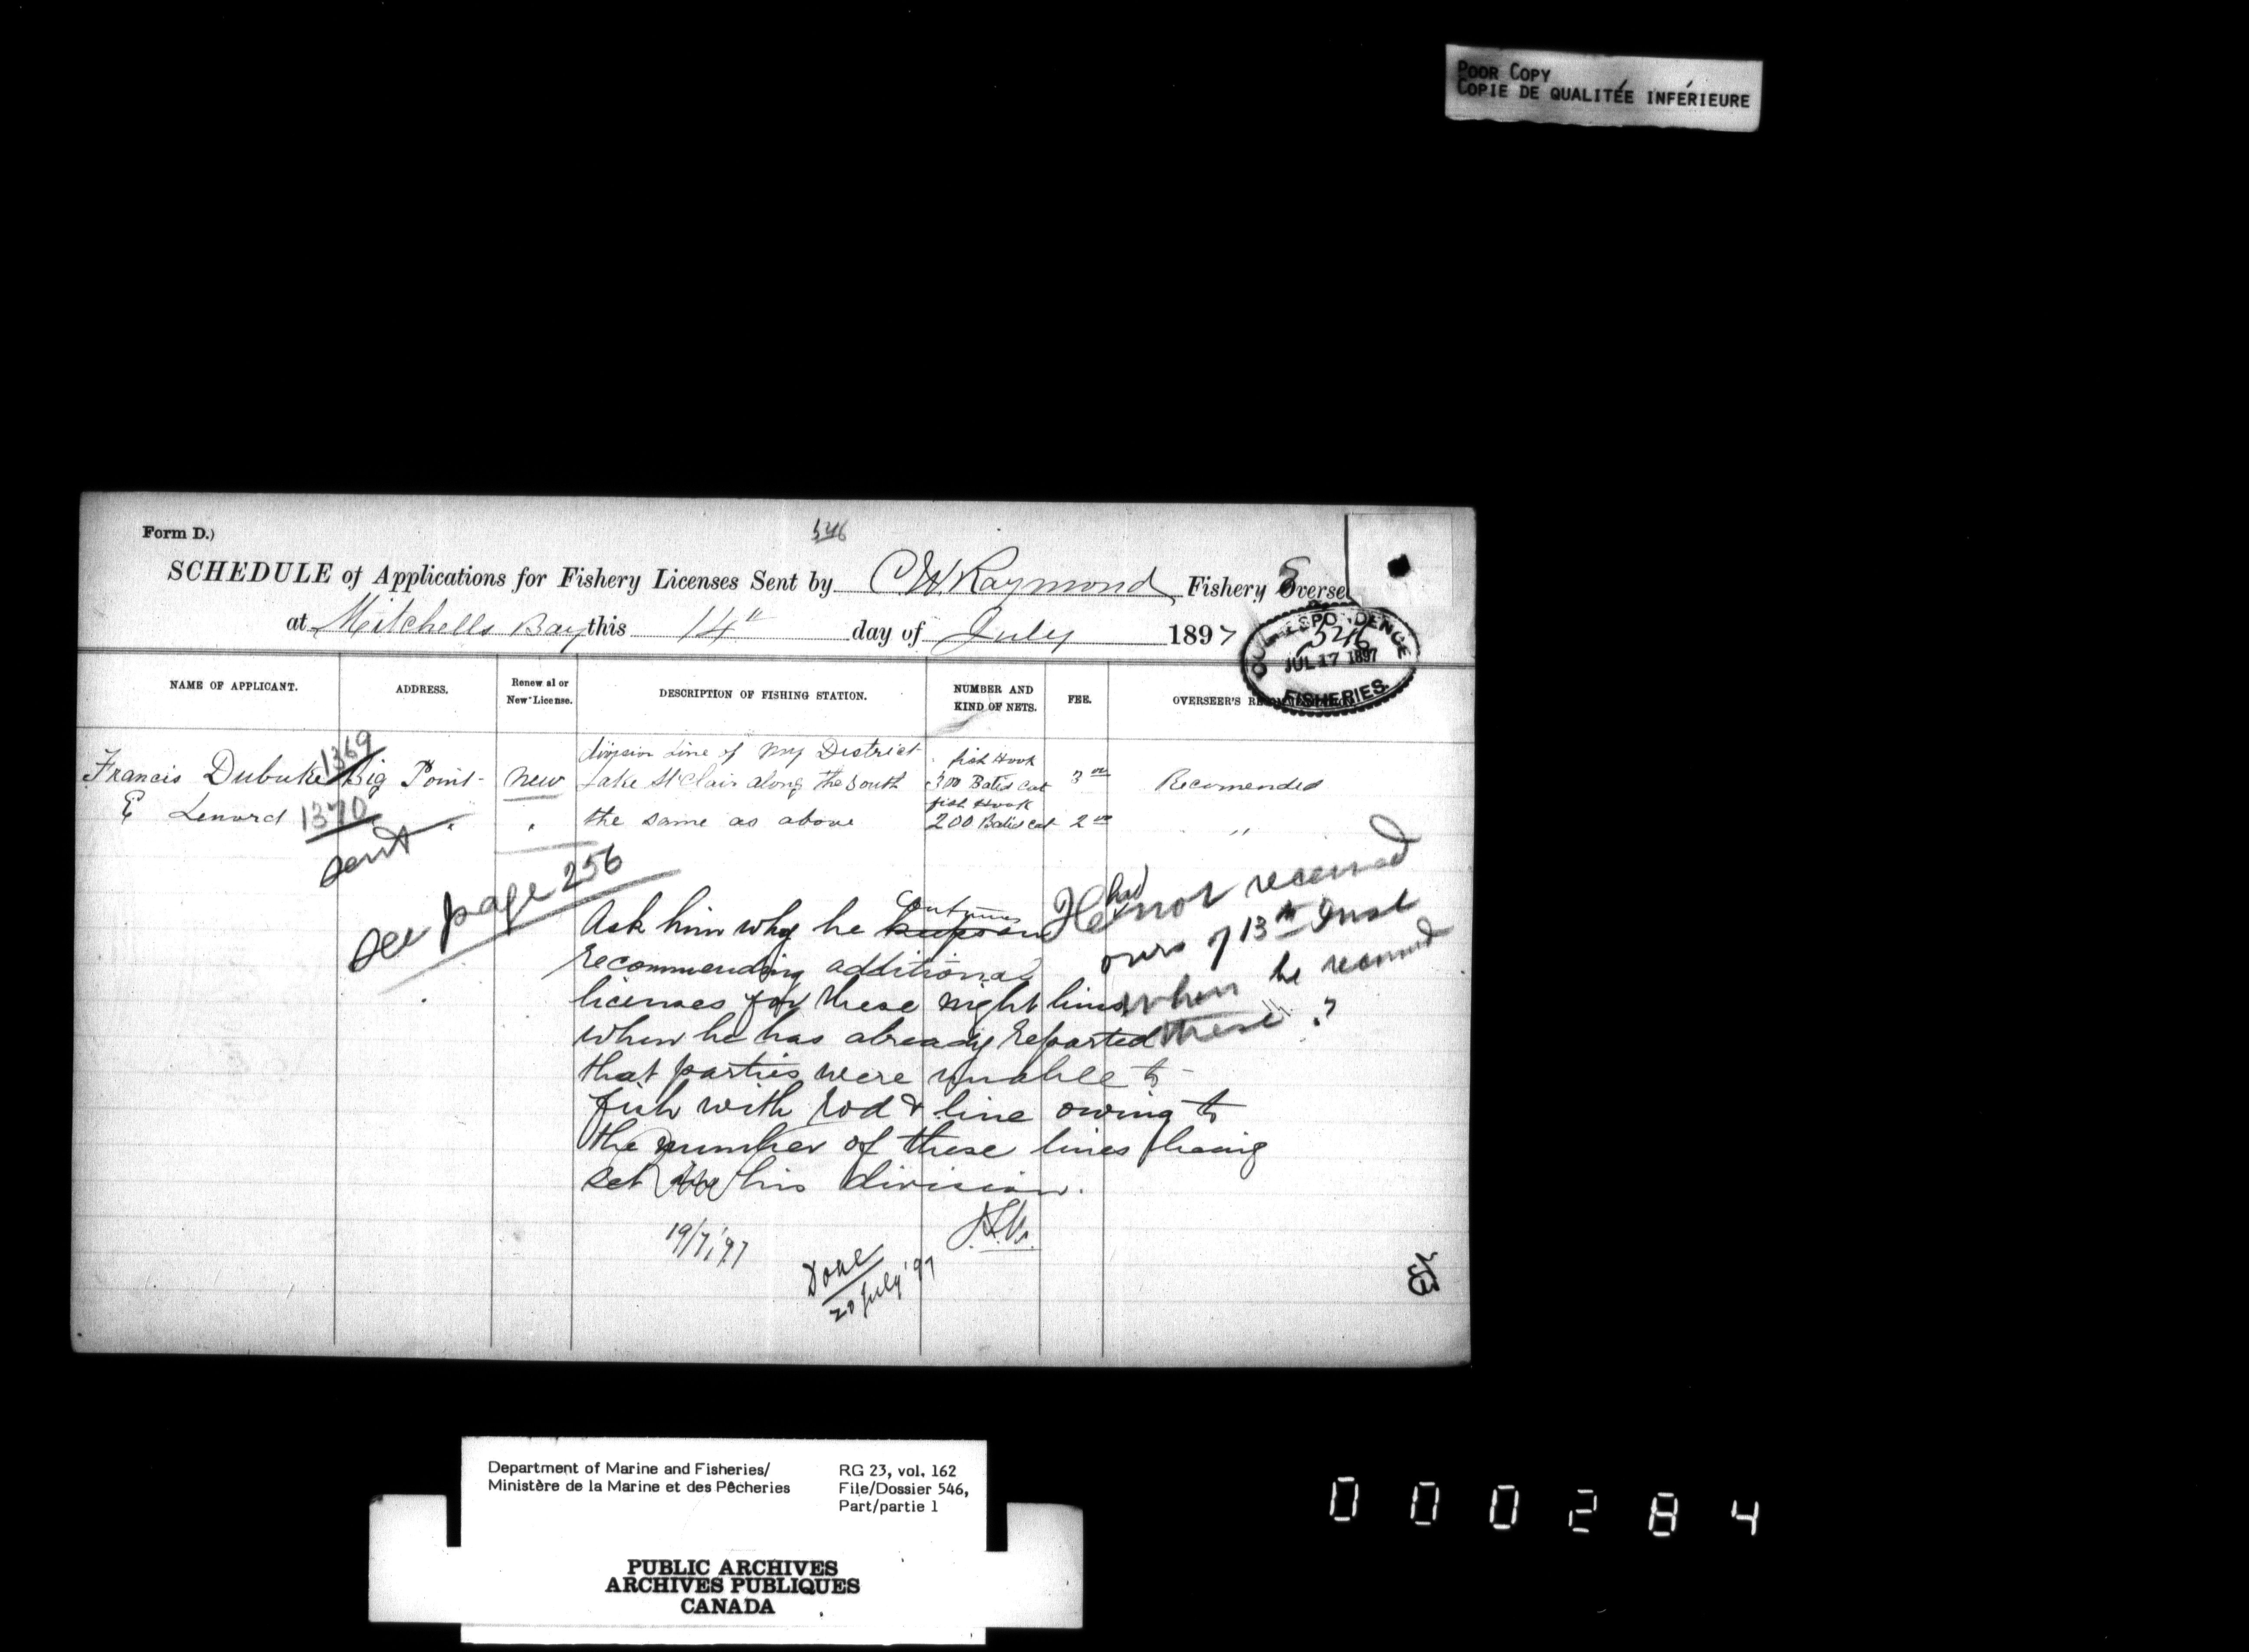 POOR COPY
COPIE DE QUALITÉE INFÉRIEURE
546
Form D.)
SCHEDULE of Applications for Fishery Licenses Sent by C.W. Raymond Fishery Overse
at Mitchells Bay this 14th day of July 1897
CORRESPONDENCE
546
JUL 17 1897
FISHERIES
NAME OF APPLICANT. ADDRESS. Renewal or New License. DESCRIPTION OF FISHING STATION. NUMBER AND KIND OF NETS. FEE. OVERSEER'S
1369
division Line of My District fish Hook
Francis Dubuke Big Point New Lake St Clair along the South 300 Bated Cat 3 00 Recomended
fish Hook
E Lenord 1370 " " the same as above 200 Bated Cat 2 00 "
sent
see page 256
Ask him why he continues
recommending additional
licenses for these night lines
when he has already reported
that parties were unable to
fish with rod & line owing to
the number of these lines being
set his division.
He had not received
ours of 13th Inst
when he
these ?
19/7/97
Done
20 July '97
Department of Marine and Fisheries/
Ministère de la Marine et des Pêcheries
RG 23, vol. 162
File/Dossier 546,
Part/partie 1
PUBLIC ARCHIVES
ARCHIVES PUBLIQUES
CANADA
000284